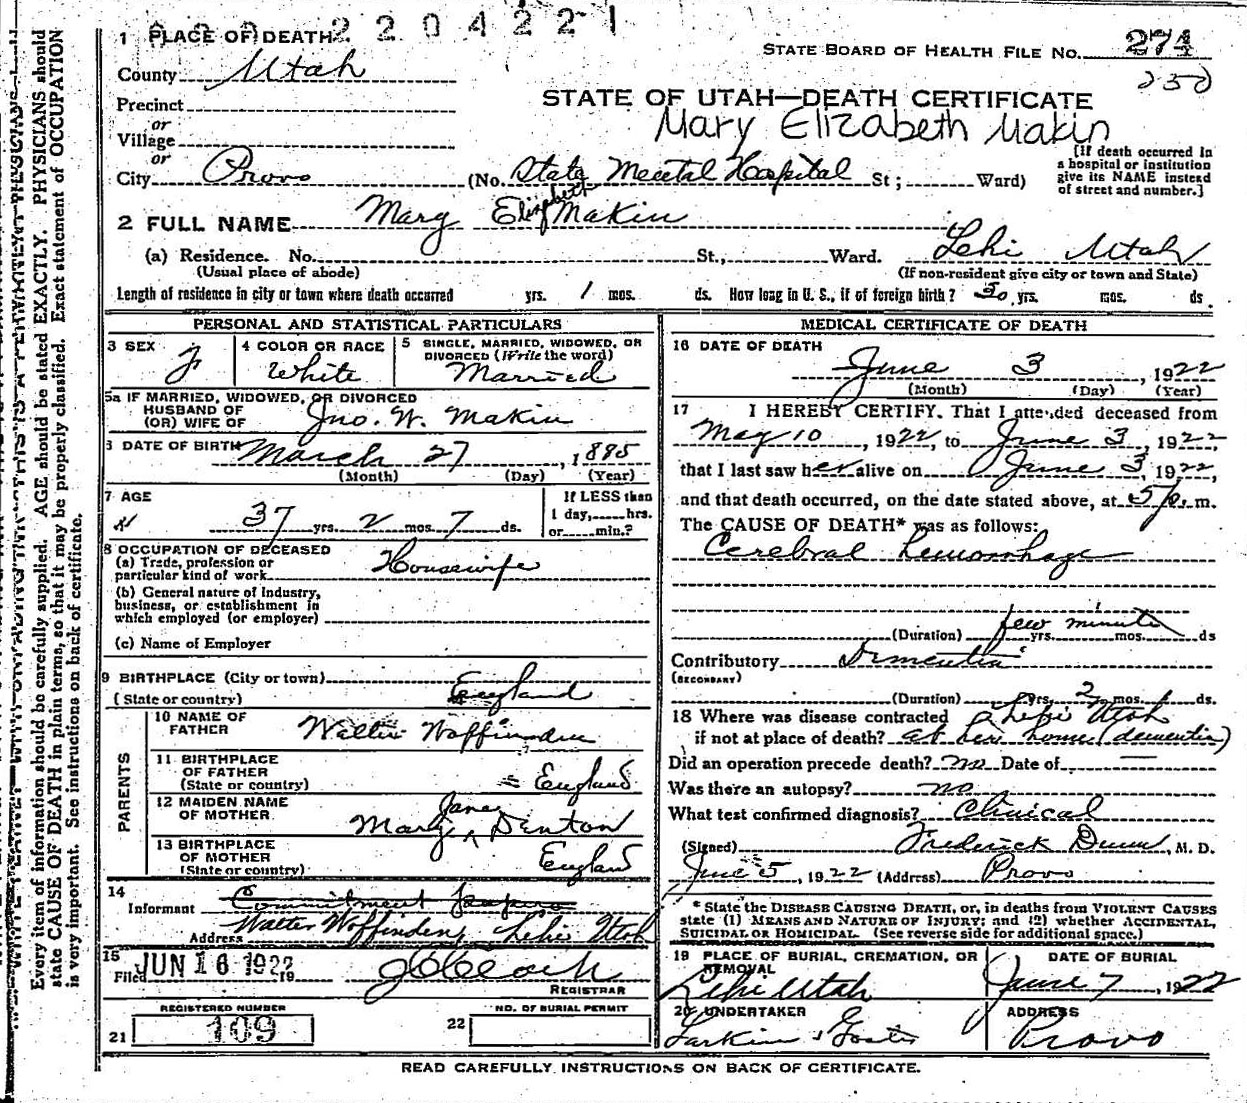 220422 1
1 PLACE OF DEATH
STATE BOARD OF HEALTH FILE NO. 274
County Utah
250
Precinct
or
Village
or
City Provo (No. State Mental Hospital St; Ward)
STATE OF UTAH—DEATH CERTIFICATE
Mary Elizabeth Makin
[If death occurred in a hospital or institution give its NAME instead of street and number.]
2 FULL NAME Mary Elizabeth Makin
(a) Residence. No. St., Ward. Lehi Utah
(Usual place of abode) (If non-resident give city or town and State)
Length of residence in city or town where death occurred yrs. 1 mos. ds. How long in U. S., if of foreign birth? 30 yrs. mos. ds.
PERSONAL AND STATISTICAL PARTICULARS
3 SEX F
4 COLOR OR RACE White
5 SINGLE, MARRIED, WIDOWED, OR DIVORCED (Write the word) Married
5a IF MARRIED, WIDOWED, OR DIVORCED
HUSBAND OF
(OR) WIFE OF Jno. W. Makin
6 DATE OF BIRTH March 27, 1885
(Month) (Day) (Year)
7 AGE
37 yrs. 2 mos. 7 ds.
If LESS than
1 day, hrs.
or min.?
8 OCCUPATION OF DECEASED
(a) Trade, profession or
particular kind of work Housewife
(b) General nature of Industry,
business, or establishment in
which employed (or employer)
(c) Name of Employer
9 BIRTHPLACE (City or town)
(State or country) England
PARENTS
10 NAME OF
FATHER Walter Woffinden
11 BIRTHPLACE
OF FATHER
(State or country) England
12 MAIDEN NAME
OF MOTHER Mary Jane Denton
13 BIRTHPLACE
OF MOTHER
(State or country) England
14
Informant Commitment papers
Walter Woffinden
Address Lehi Utah
15
Filed JUN 16 1922 19
REGISTRAR
REGISTERED NUMBER
21 109
NO. OF BURIAL PERMIT
22
MEDICAL CERTIFICATE OF DEATH
16 DATE OF DEATH
June 3, 1922
(Month) (Day) (Year)
17 I HEREBY CERTIFY. That I attended deceased from
May 10, 1922, to June 3, 1922,
that I last saw her alive on June 3, 1922,
and that death occurred, on the date stated above, at 5 p. m.
The CAUSE OF DEATH* was as follows:
Cerebral hemorrhage
few minutes
(Duration) yrs. mos. ds
Contributory Dementia
(SECONDARY)
(Duration) yrs. 2 mos. ds.
18 Where was disease contracted Lehi Utah
if not at place of death? at her home (dementia)
Did an operation precede death? no Date of —
Was there an autopsy? no
What test confirmed diagnosis? Clinical
(Signed) Frederick Dunn, M. D.
June 5, 1922 (Address) Provo
* State the DISEASE CAUSING DEATH, or, in deaths from VIOLENT CAUSES
state (1) MEANS AND NATURE OF INJURY; and (2) whether ACCIDENTAL,
SUICIDAL OR HOMICIDAL. (See reverse side for additional space.)
19 PLACE OF BURIAL, CREMATION, OR
REMOVAL
Lehi Utah
DATE OF BURIAL
June 7, 1922
20 UNDERTAKER
Larkin
ADDRESS
Provo
READ CAREFULLY INSTRUCTIONS ON BACK OF CERTIFICATE.
Every item of information should be carefully supplied. AGE should be stated EXACTLY. PHYSICIANS should
state CAUSE OF DEATH in plain terms, so that it may be properly classified. Exact statement of OCCUPATION
is very important. See instructions on back of certificate.